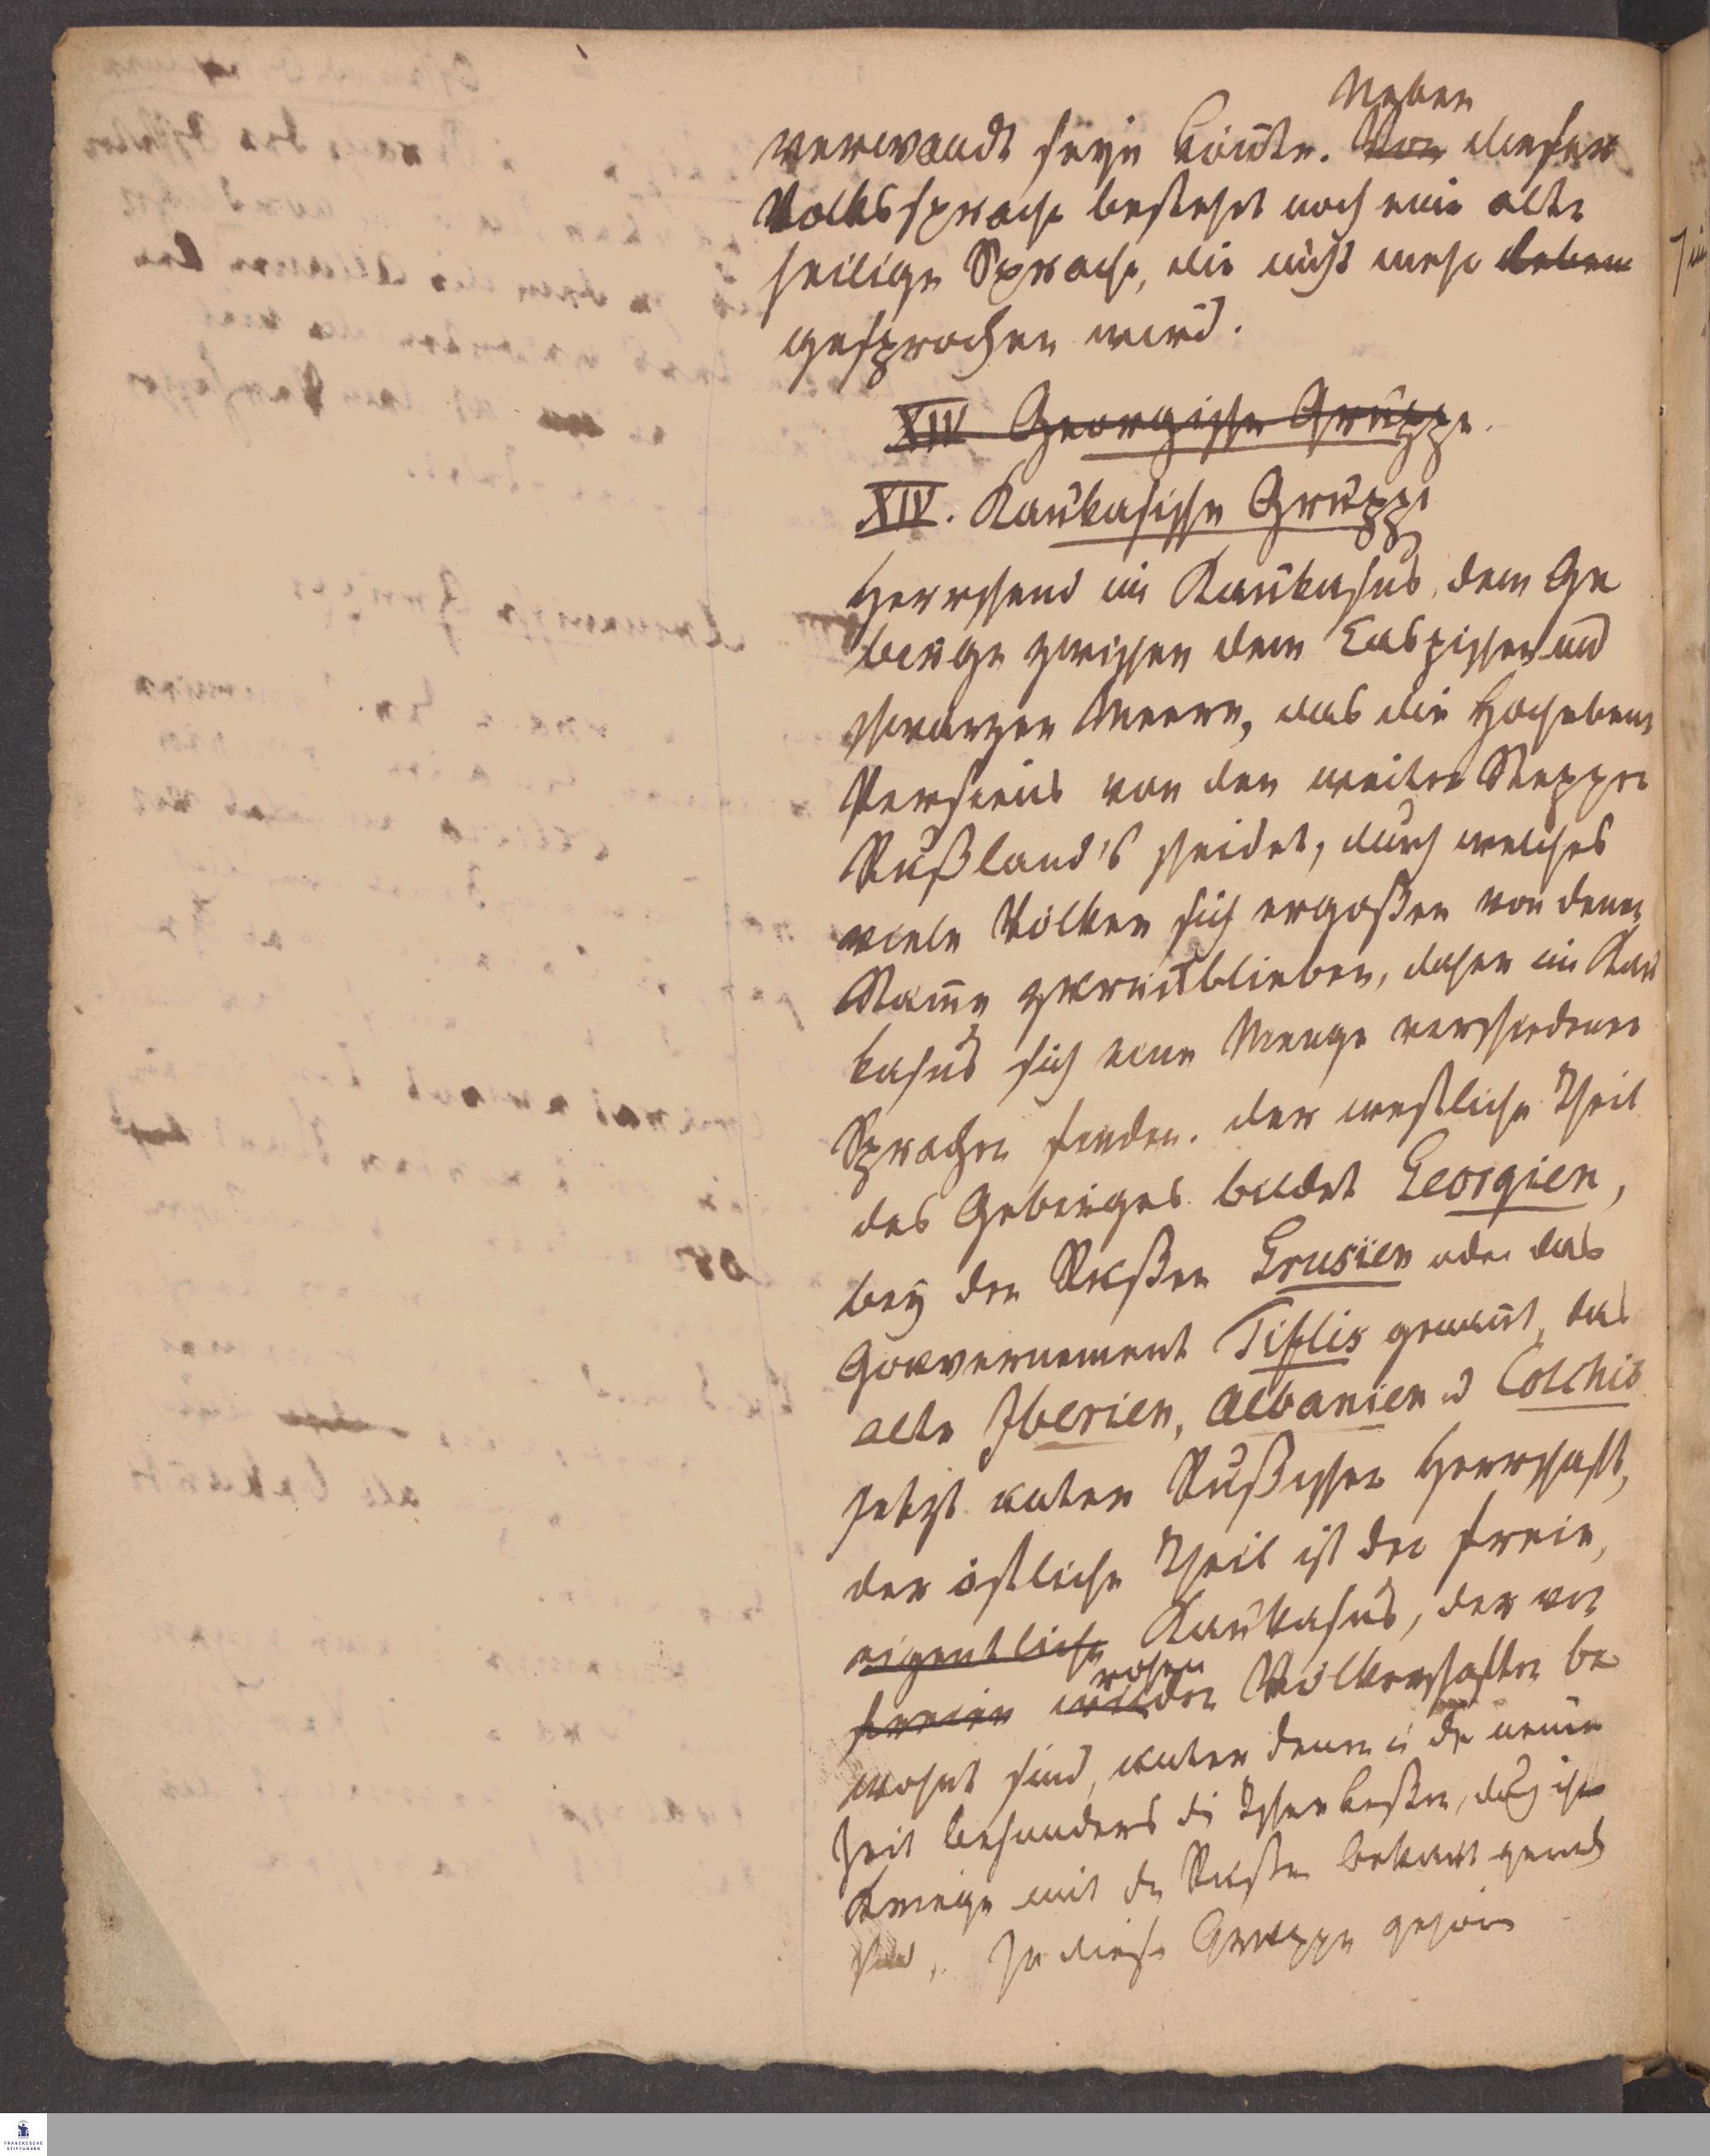 Neben
verwandt seyn könnte. Von dieser
Volkssprache besteht noch eine alte
heilige Sprache, die nicht mehr leben
gesprochen wird.
XIV Georgische Gruppe.
XIV. Kaukasische Gruppe
Herrschend im Kaukasus, dem Ge
birge zwischen dem Caspischen und
schwarzen Meere, das die Hochebene
Persiens von den weiten Steppen
Rußland's scheidet, durch welches
viele Völker sich ergoßen von denen
Stämme zurückblieben, daher im Kau
kasus sich eine Menge verschiedener
Sprachen finden. der westliche Theil
des Gebirges bildet Georgien,
bey den Rußen Grusien oder das
Gouvernement Tiflis genannt, das
alte Iberien, Albanien u Colchis
jetzt unter Rußischer Herrschaft,
der östliche Theil ist der freie,
eigentliche Kaukasus, der von
rohen
freien wilden Völkerschaften be
wohnt sind, unter denen in der neuen
Zeit besonders die Tscherkeßen, durch ihre
Kriege mit den Rußen bekannt geword
sind, Zu dieser Gruppe gehören
FRANCKESCHE
STIFTUNGEN